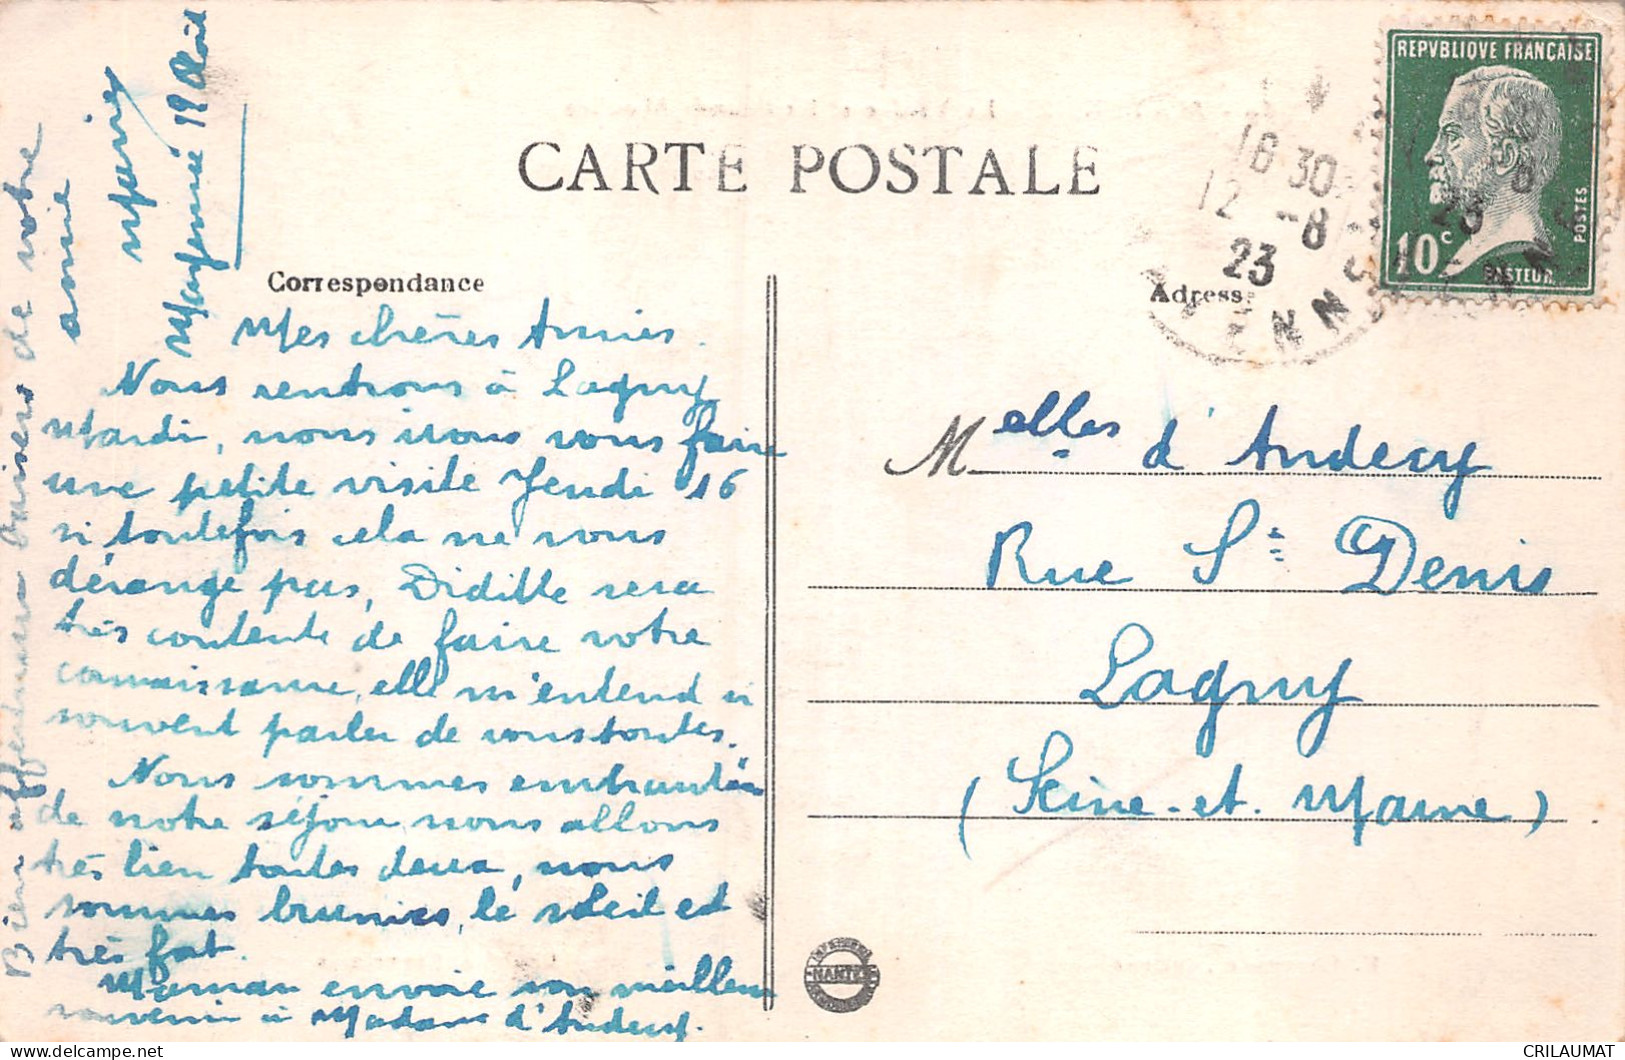 CARTE POSTALE
REPVBLIQVE FRANÇAISE
10c
POSTES
PASTEUR
16 30
12 -8
23
Correspondance
Mes chères Amies.
Nous rentrons à Lagny
Mardi, nous irons vous faire
une petite visite Jeudi 16
si toutefois cela ne vous
dérange pas, Didille sera
très contente de faire votre
connaissance, elle m'entend si
souvent parler de vous toutes.
Nous sommes
de notre séjour nous allons
très bien toutes deux, nous
sommes brunies, le soleil est
très fort.
Maman envoie son meilleur
souvenir à Madame d'Andecy.
Bien affectueux baisers de votre
amie
12 Août
Adresse
Melles d'Andecy
Rue St Denis
Lagny
(Seine-et-Marne)
NANTES
CRILAUMAT